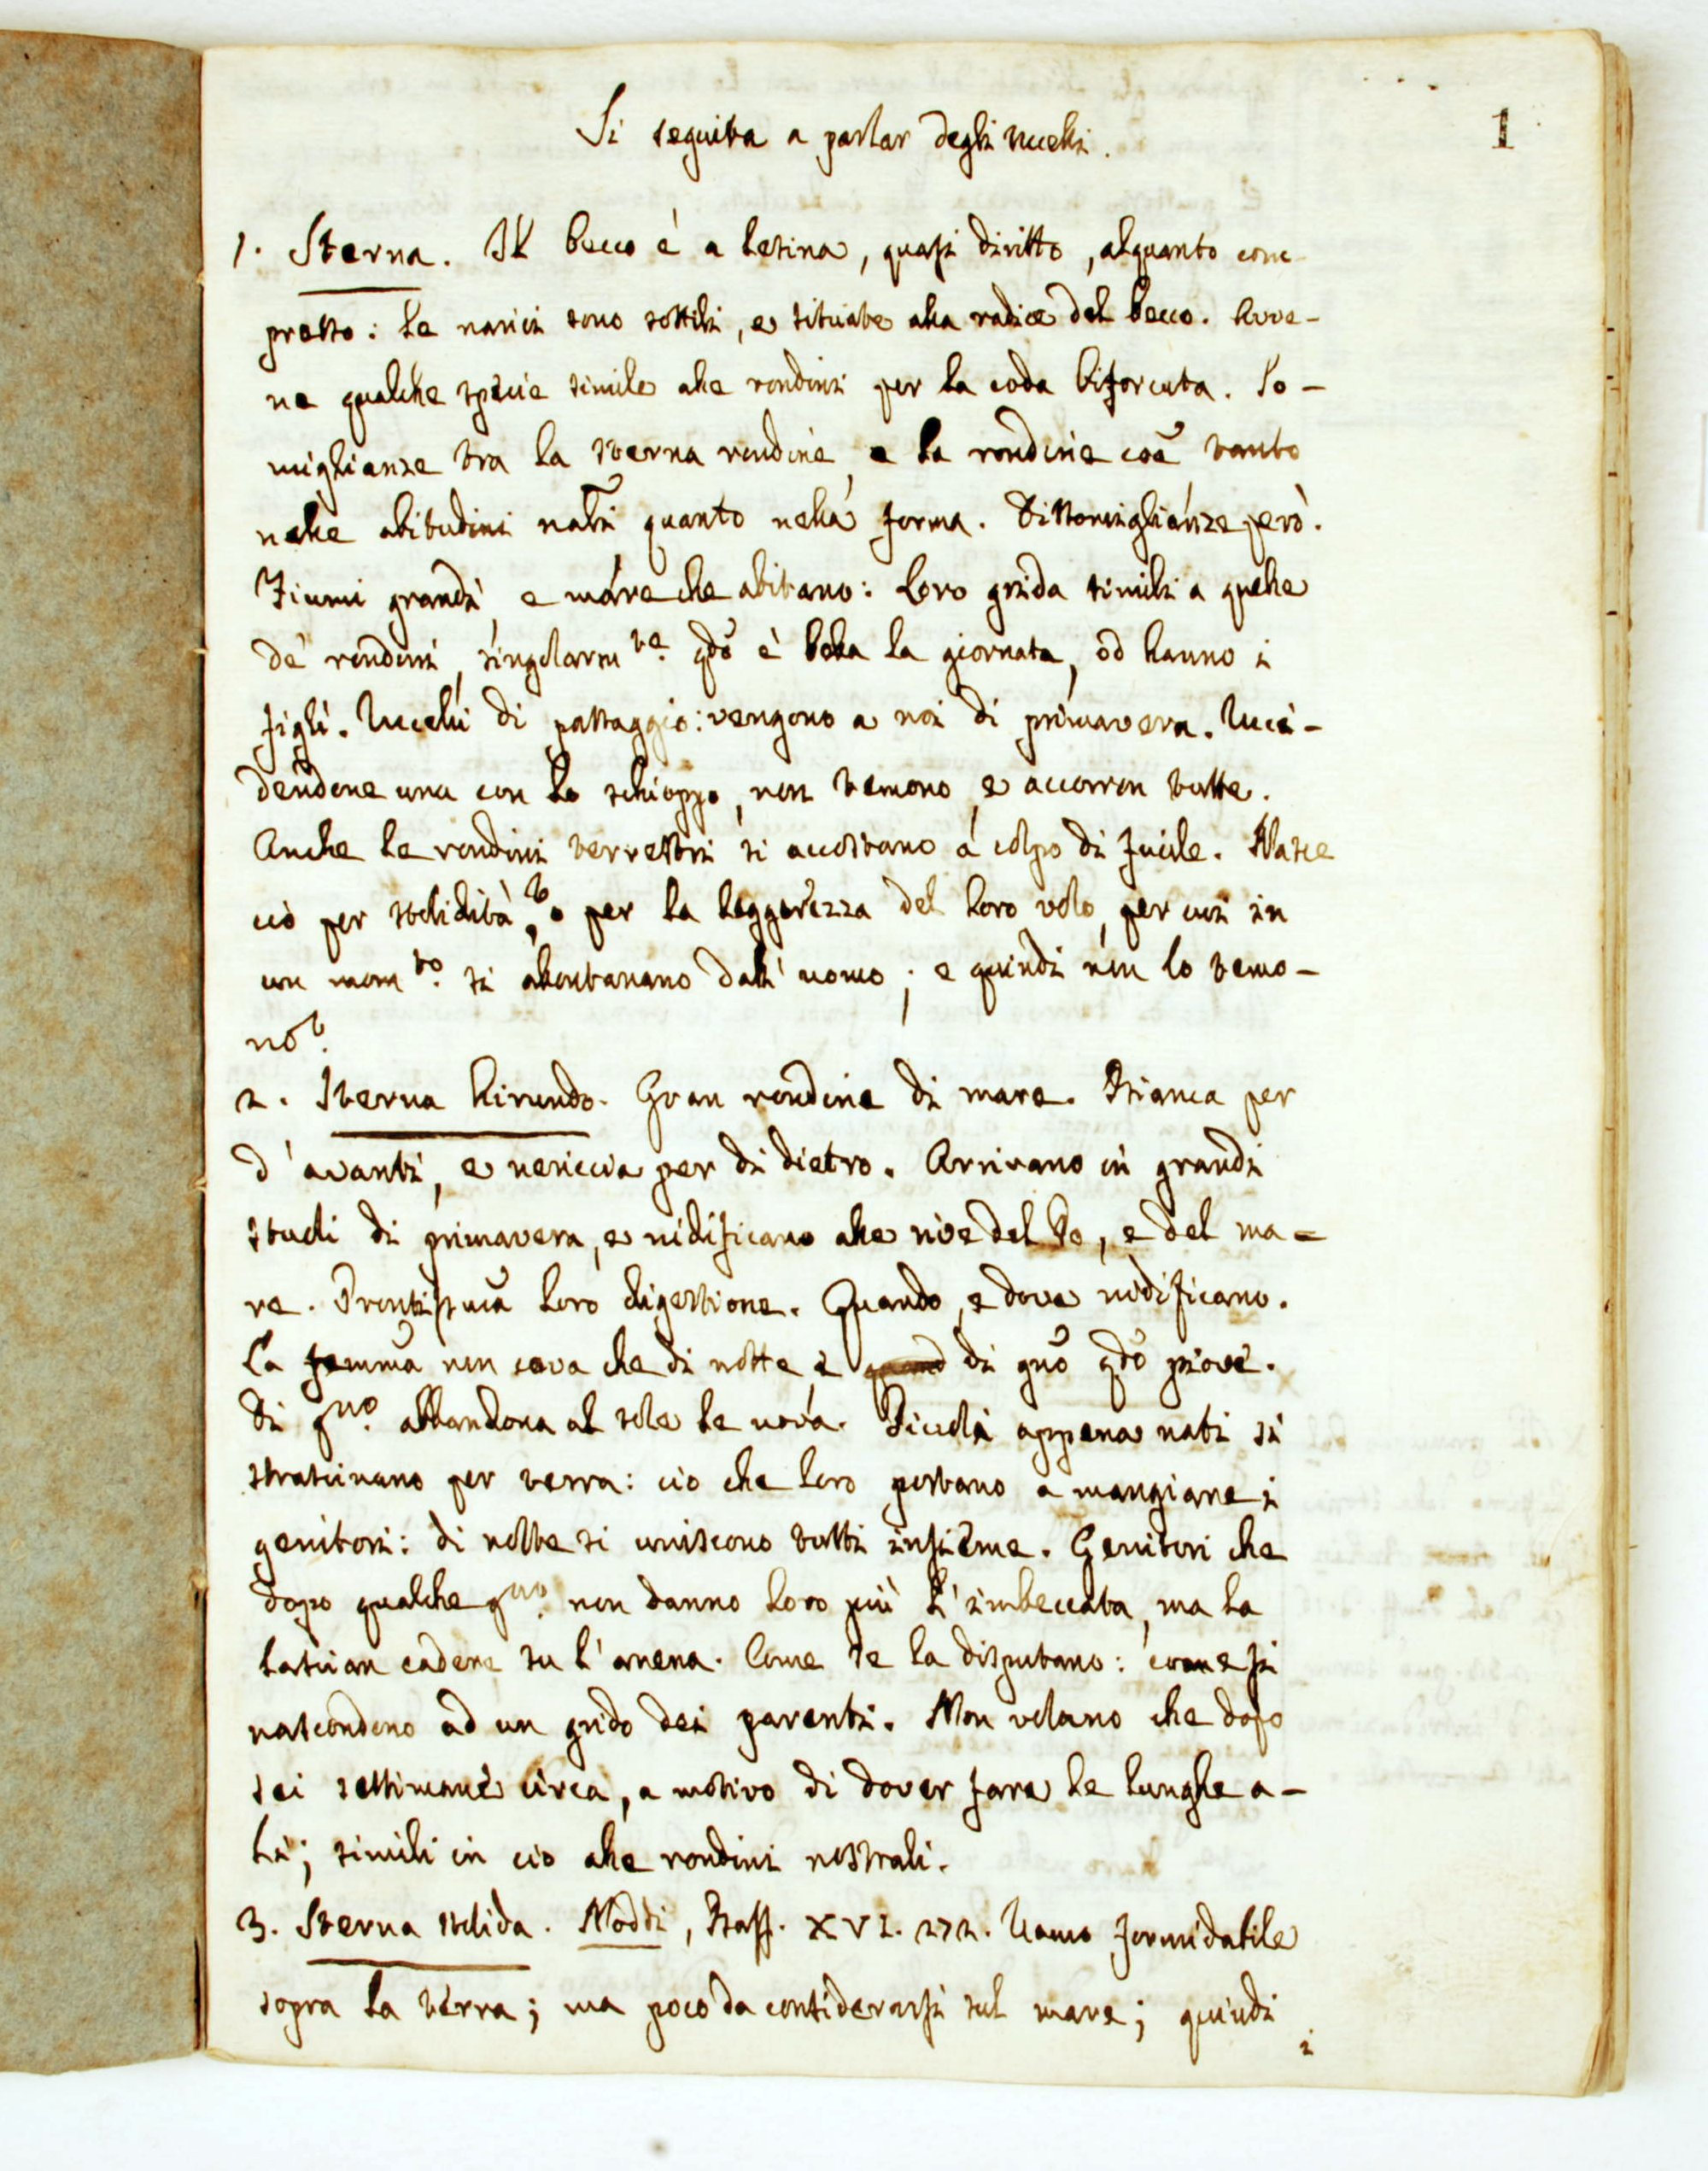 Si seguita a parlar degli uccelli.
1
1. Sterna. Il becco è a lesina, quasi diritto, alquanto com-
presso: le narici sono sottili, e situate alla radice del becco. Avve-
ne qualche specie simile alle rondini per la coda biforcuta. So-
miglianze tra la sterna rondine, e la rondine coe tanto
nelle abitudini nali quanto nella forma. Dissomiglianze però.
Fiumi grandi, e mare che abitano: loro grida simili a quelle
de' rondoni, singolarmte. qdo è bella la giornata, od hanno i
figli. Uccelli di passaggio: vengono a noi di primavera. Ucci-
dendone una con lo schioppo, non temono, e accorron tutte.
Anche le rondini terrestri si accostano a colpo di fucile. Nasce
ciò per stolidità, o per la leggerezza del loro volo, per cui in
un momto. si allontanano dall' uomo; e quindi non lo temo-
no?
2. Sterna hirundo. Gran rondine di mare. Bianca per
d'avanti, e nericcia per di dietro. Arrivano in grandi
stuoli di primavera, e nidificano alle rive del Po, e del ma-
re. Prontissima loro digestione. Quando, e dove nidificano.
La femma non cova che di notte, e di gno qdo piove.
Di gno. abbandona al sole le uova. Piccoli appena nati si
strascinano per terra: ciò che loro portano a mangiare i
genitori: di notte si uniscono tutti insieme. Genitori che
dopo qualche gno. non danno loro più l'imbeccata, ma la
lascian cadere su l'arena. Come se la disputano: come si
nascondono ad un grido dei parenti. Non volano che dopo
sei settimane circa, a motivo di dover fare le lunghe a-
li; simili in ciò alle rondini nostrali.
3. Sterna stolida. Noddi, Buff. XVI. 272. Uomo formidabile
sopra la terra; ma poco da considerarsi sul mare; quindi
i